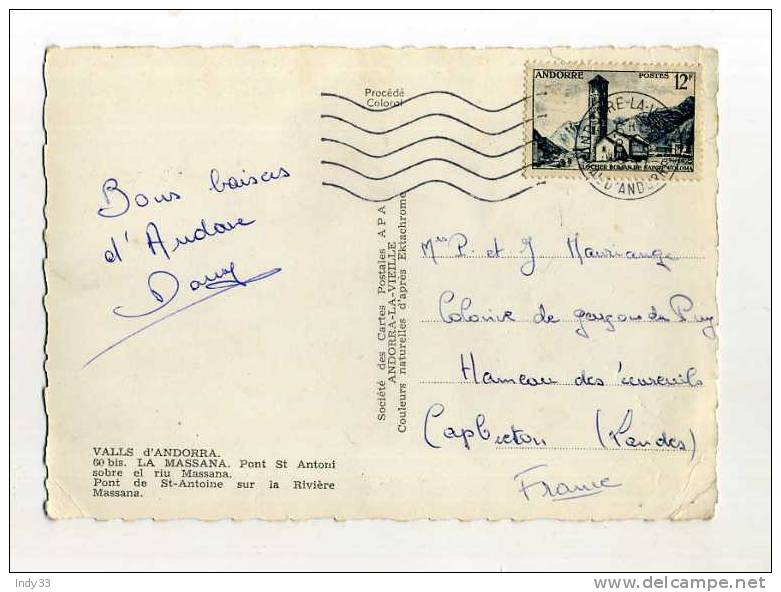 Procédé
Colorol
ANDORRE POSTES 12F
CLOCHER ROMAN DE SAINTE-COLOMA
ANDORRE-LA-V
VAL D'ANDORRE
Bons baisers
d'Andore
Dany
Société des Cartes Postales A P A
ANDORRA-LA-VIEILLE
Couleurs naturelles d'après Ektachrome
P. et J Mauriange
Colonie de garçons du Puy
Hameau des écureuils
Capbreton (Landes)
France
VALLS d'ANDORRA.
60 bis. LA MASSANA. Pont St Antoni
sobre el riu Massana.
Pont de St-Antoine sur la Rivière
Massana.
Indy33
delcampe.net